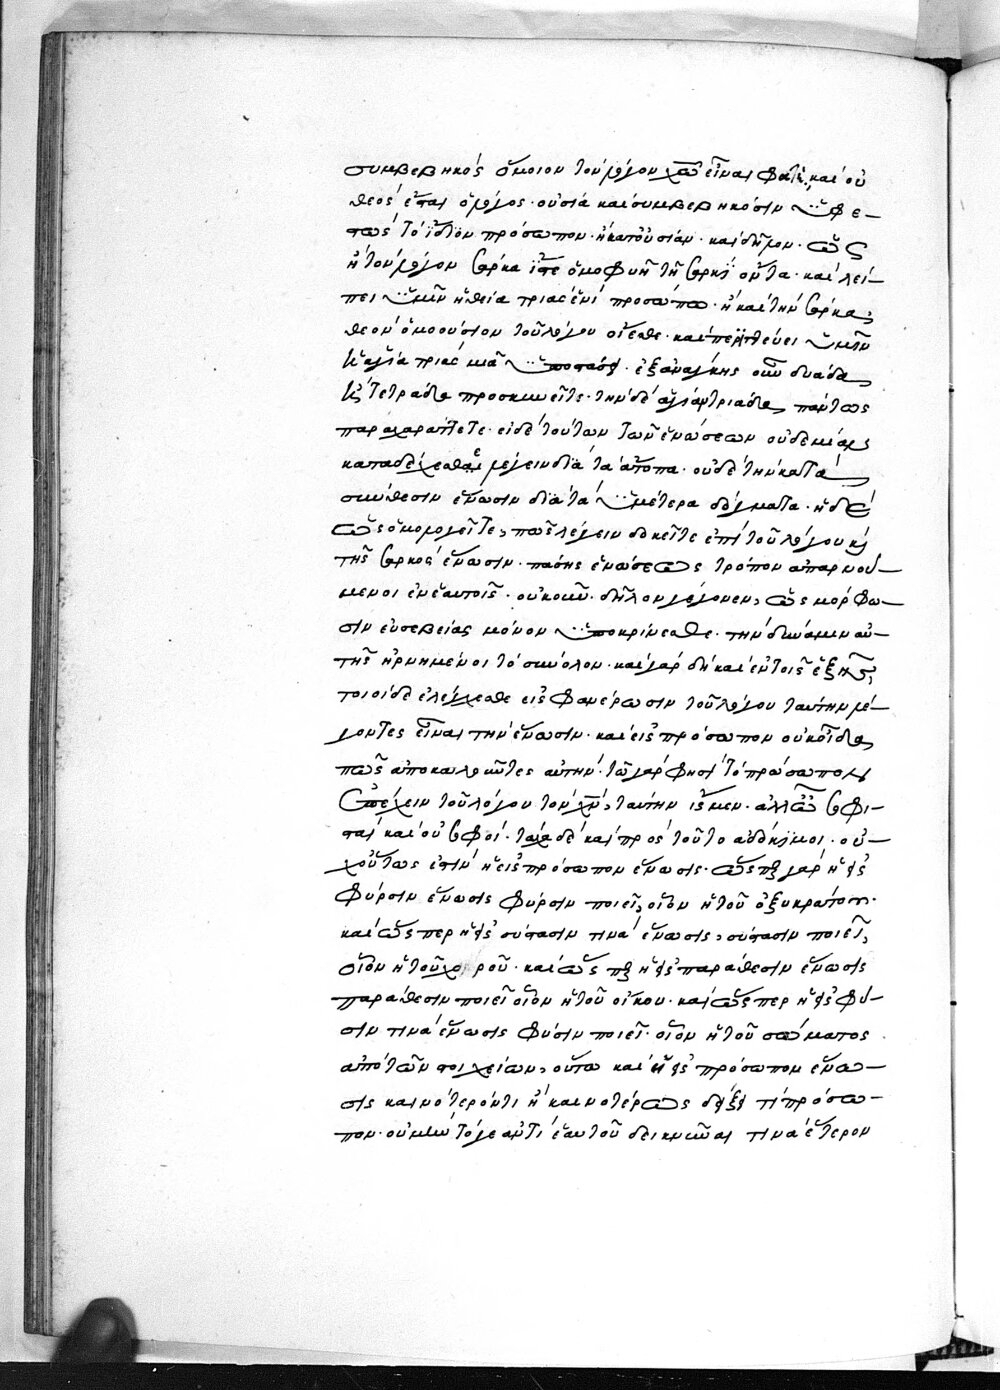 συμβεβηκὸς ὅμοιον τὸν λόγον χῶ εἶναι φατὲ, καὶ οὐ
θεὸς ἔσται ὁ λόγος· οὐσία καὶ συμβεβηκόσιν ὑφε-
στῶς τὸ ἴδιον πρόσωπον· ἢ κατ' οὐσίαν· καὶ δῆλον· ὡς
ἢ τὸν λόγον σάρκα ἴστε ὁμοφυῆ τῇ σαρκὶ ὄντα· καὶ λεί-
πει ὑμῖν ἡ θεία τριὰς ἑνὶ προσώπω· ἢ καὶ τὴν σάρκα
θεὸν ὁμοούσιον τοῦ λόγου οἴεσθε· καὶ περιττεύει ὑμῖν
ἡ ἁγία τριὰς μιᾶ ὑποστάσει· ἐξ ἀνάγκης οὖν δυάδα
ἢ τετράδα προσκυνεῖτε· τὴν δὲ ἁγίαν τριάδα πάντως
παραχαράττετε· εἰ δὲ τούτων τῶν ἑνώσεων οὐδεμίαν
καταδέχεσθαι λέγειν διὰ τὰ ἄτοπα· οὐδὲ τὴν κατὰ
σύνθεσιν ἕνωσιν διὰ τὰ ὑμέτερα δόγματα· ἢ δι
ὡς ὁμολογεῖτε, πῶς λέγειν δοκεῖτε ἐπὶ τοῦ λόγου καὶ
τῆς σαρκὸς ἕνωσιν· πάσης ἑνώσεως τρόπον ἀπαρνού-
μενοι ἐν ἑαυτοῖς· οὐκοῦν· δῆλον γέγονεν, ὡς μόρφω-
σιν εὐσεβείας μόνον ὑποκρίνεσθε· τὴν δύναμιν αὐ-
τῆς ἠρνημένοι τὸ σύνολον· καὶ γὰρ δὴ καὶ ἐν τοῖς ἑξῆς,
τοιοίδε ἐλέγχεσθε εἰς φανέρωσιν τοῦ λόγου ταύτην λέ-
γοντες εἶναι τὴν ἕνωσιν· καὶ εἰς πρόσωπον οὐκ οἶδα
πῶς ἀποκαλοῦντες αὐτήν· τῶ γὰρ φησὶ τὸ πρόσωπον
ἐπέχειν τοῦ λόγου τὸν χν, ταύτην ἴσμεν· ἀλλ' ὦ σοφι-
σταὶ καὶ οὐ σοφοί· τάχα δὲ καὶ πρὸς τοῦτο ἀδόκιμοι· οὐ-
χ οὕτως ἐστὶν ἡ εἰς πρόσωπον ἕνωσις· ὥσπερ γὰρ ἡ εἰς
φύρσιν ἕνωσις φύρσιν ποιεῖ, οἷον ἡ τοῦ ὀξυκράτου·
καὶ ὥσπερ ἡ εἰς σύστασιν τινὰ ἕνωσις, σύστασιν ποιεῖ,
οἷον ἡ τοῦ χοροῦ· καὶ ὥσπερ ἡ εἰς παράθεσιν ἕνωσις
παράθεσιν ποιεῖ οἷον ἡ τοῦ οἴκου· καὶ ὥσπερ ἡ εἰς φύ-
σιν τινὰ ἕνωσις φύσιν ποιεῖ· οἷον ἡ τοῦ σώματος
ἀπὸ τῶν στοιχείων, οὕτω καὶ ἡ εἰς πρόσωπον ἕνω-
σις καινότερόν τι ἢ καινοτέρως δείξει τὶ πρόσω-
πον· οὐ μὴν τό γε ἀντὶ ἑαυτοῦ δεικνῦναι τινὰ ἕτερον